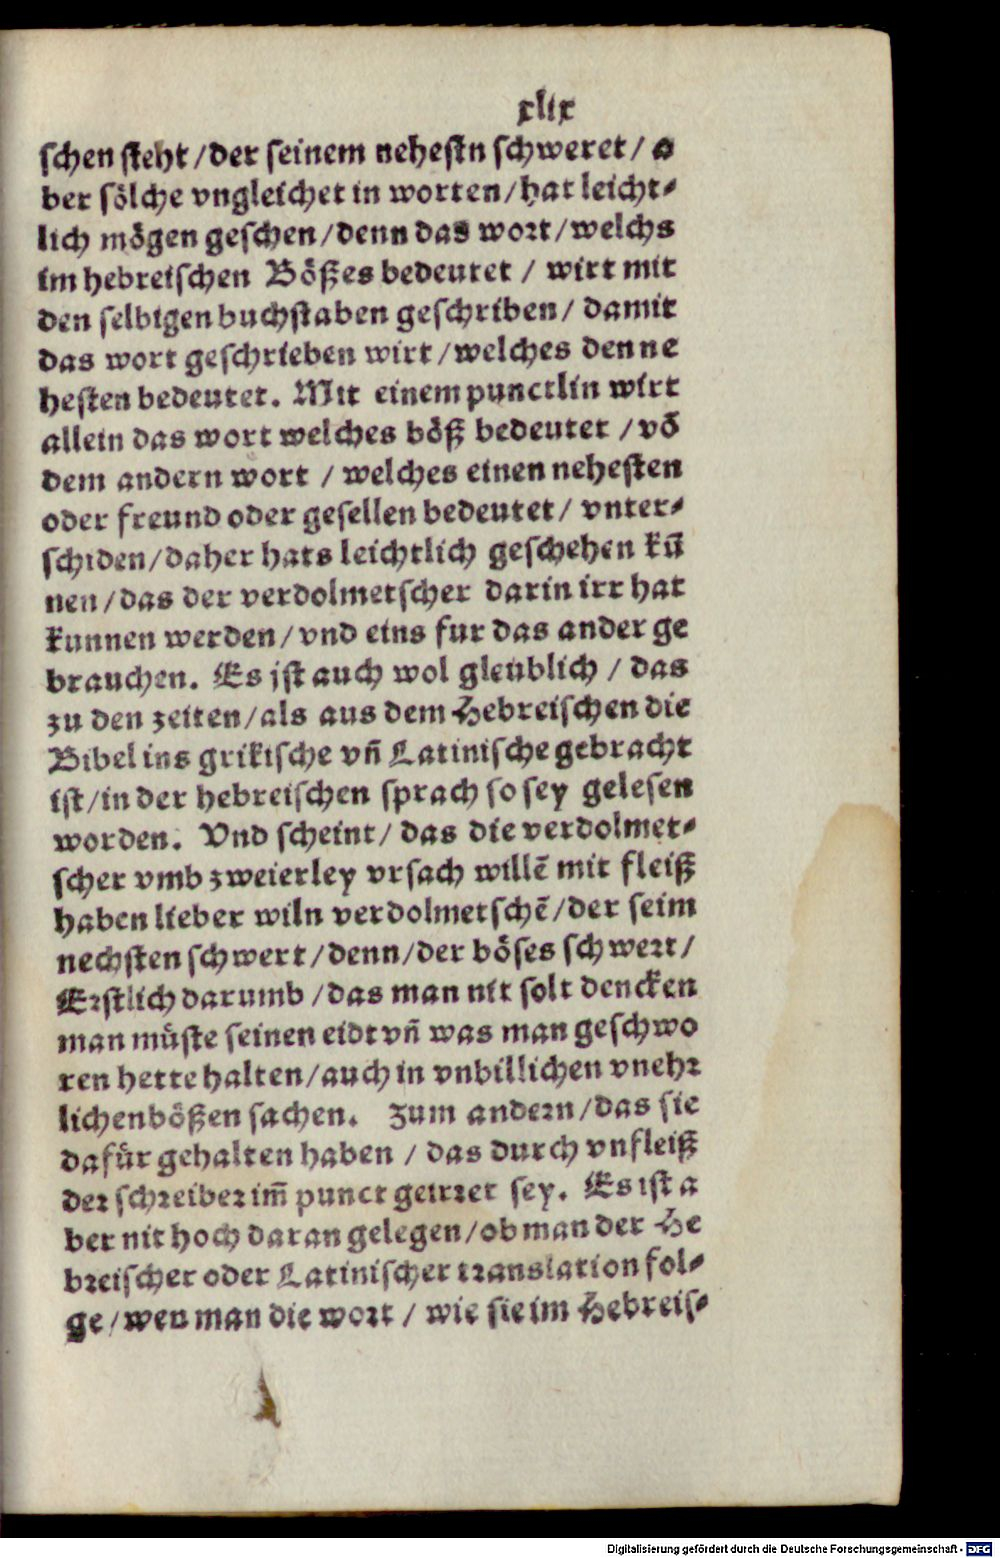 xlix
schen steht / der seinem nehestn schweret / a
ber sölche vngleichet in worten / hat leicht⸗
lich mögen geschen / denn das wort / welchs
im hebreischen Bößes bedeutet / wirt mit
den selbigen buchstaben geschriben / damit
das wort geschrieben wirt / welches den ne
hesten bedeutet. Mit einem punctlin wirt
allein das wort welches böß bedeutet / võ
dem andern wort / welches einen nehesten
oder freund oder gesellen bedeutet / vnter⸗
schiden / daher hats leichtlich geschehen kũ
nen / das der verdolmetscher darin irr hat
kunnen werden / vnd eins fur das ander ge
brauchen. Es jst auch wol gleublich / das
zu den zeiten / als aus dem Hebreischen die
Bibel ins grikische vñ Latinische gebracht
ist / in der hebreischen sprach so sey gelesen
worden. Vnd scheint / das die verdolmet⸗
scher vmb zweierley vrsach willẽ mit fleiß
haben lieber wiln verdolmetschẽ / der seim
nechsten schwert / denn / der böses schwert /
Erstlich darumb / das man nit solt dencken
man müste seinen eidt vñ was man geschwo
ren hette halten / auch in vnbillichen vnehr
lichen bößen sachen. Zum andern / das sie
dafür gehalten haben / das durch vnfleiß
der schreiber im̃ punct geirret sey. Es ist a
ber nit hoch daran gelegen / ob man der He
breischer oder Latinischer translation fol⸗
ge / wen man die wort / wie sie im Hebreis⸗
Digitalisierung gefördert durch die Deutsche Forschungsgemeinschaft - DFG